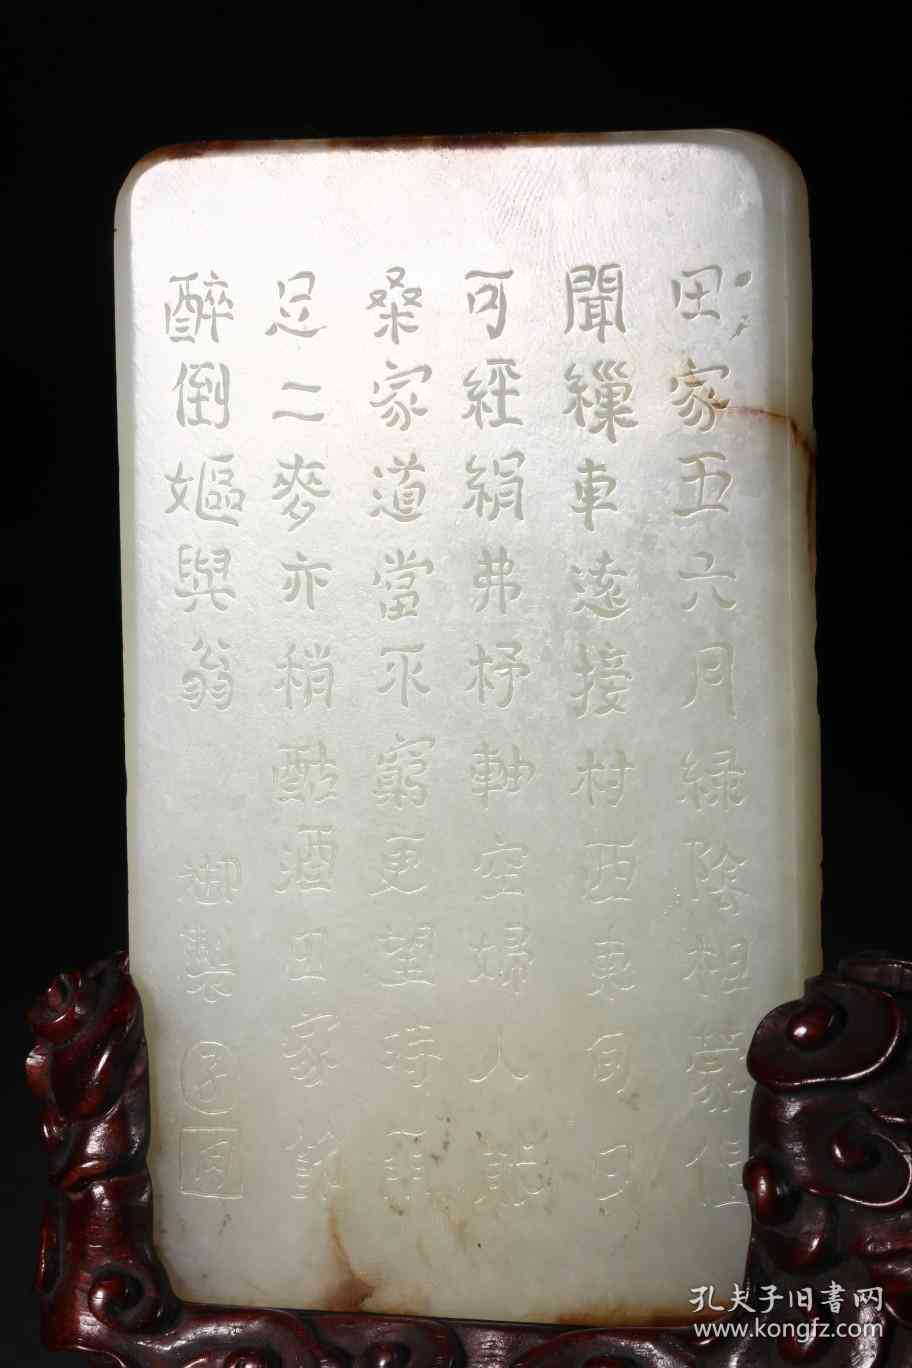 田家五六月綠陰相蒙但
聞繅車遠接村西東旬日
可經絹弗杼軸空婦人能
桑家道當不窮更望時雨
足二麥亦稍酤酒田家
醉倒嫗與翁 御製 子
孔夫子旧書网
www.kongfz.com